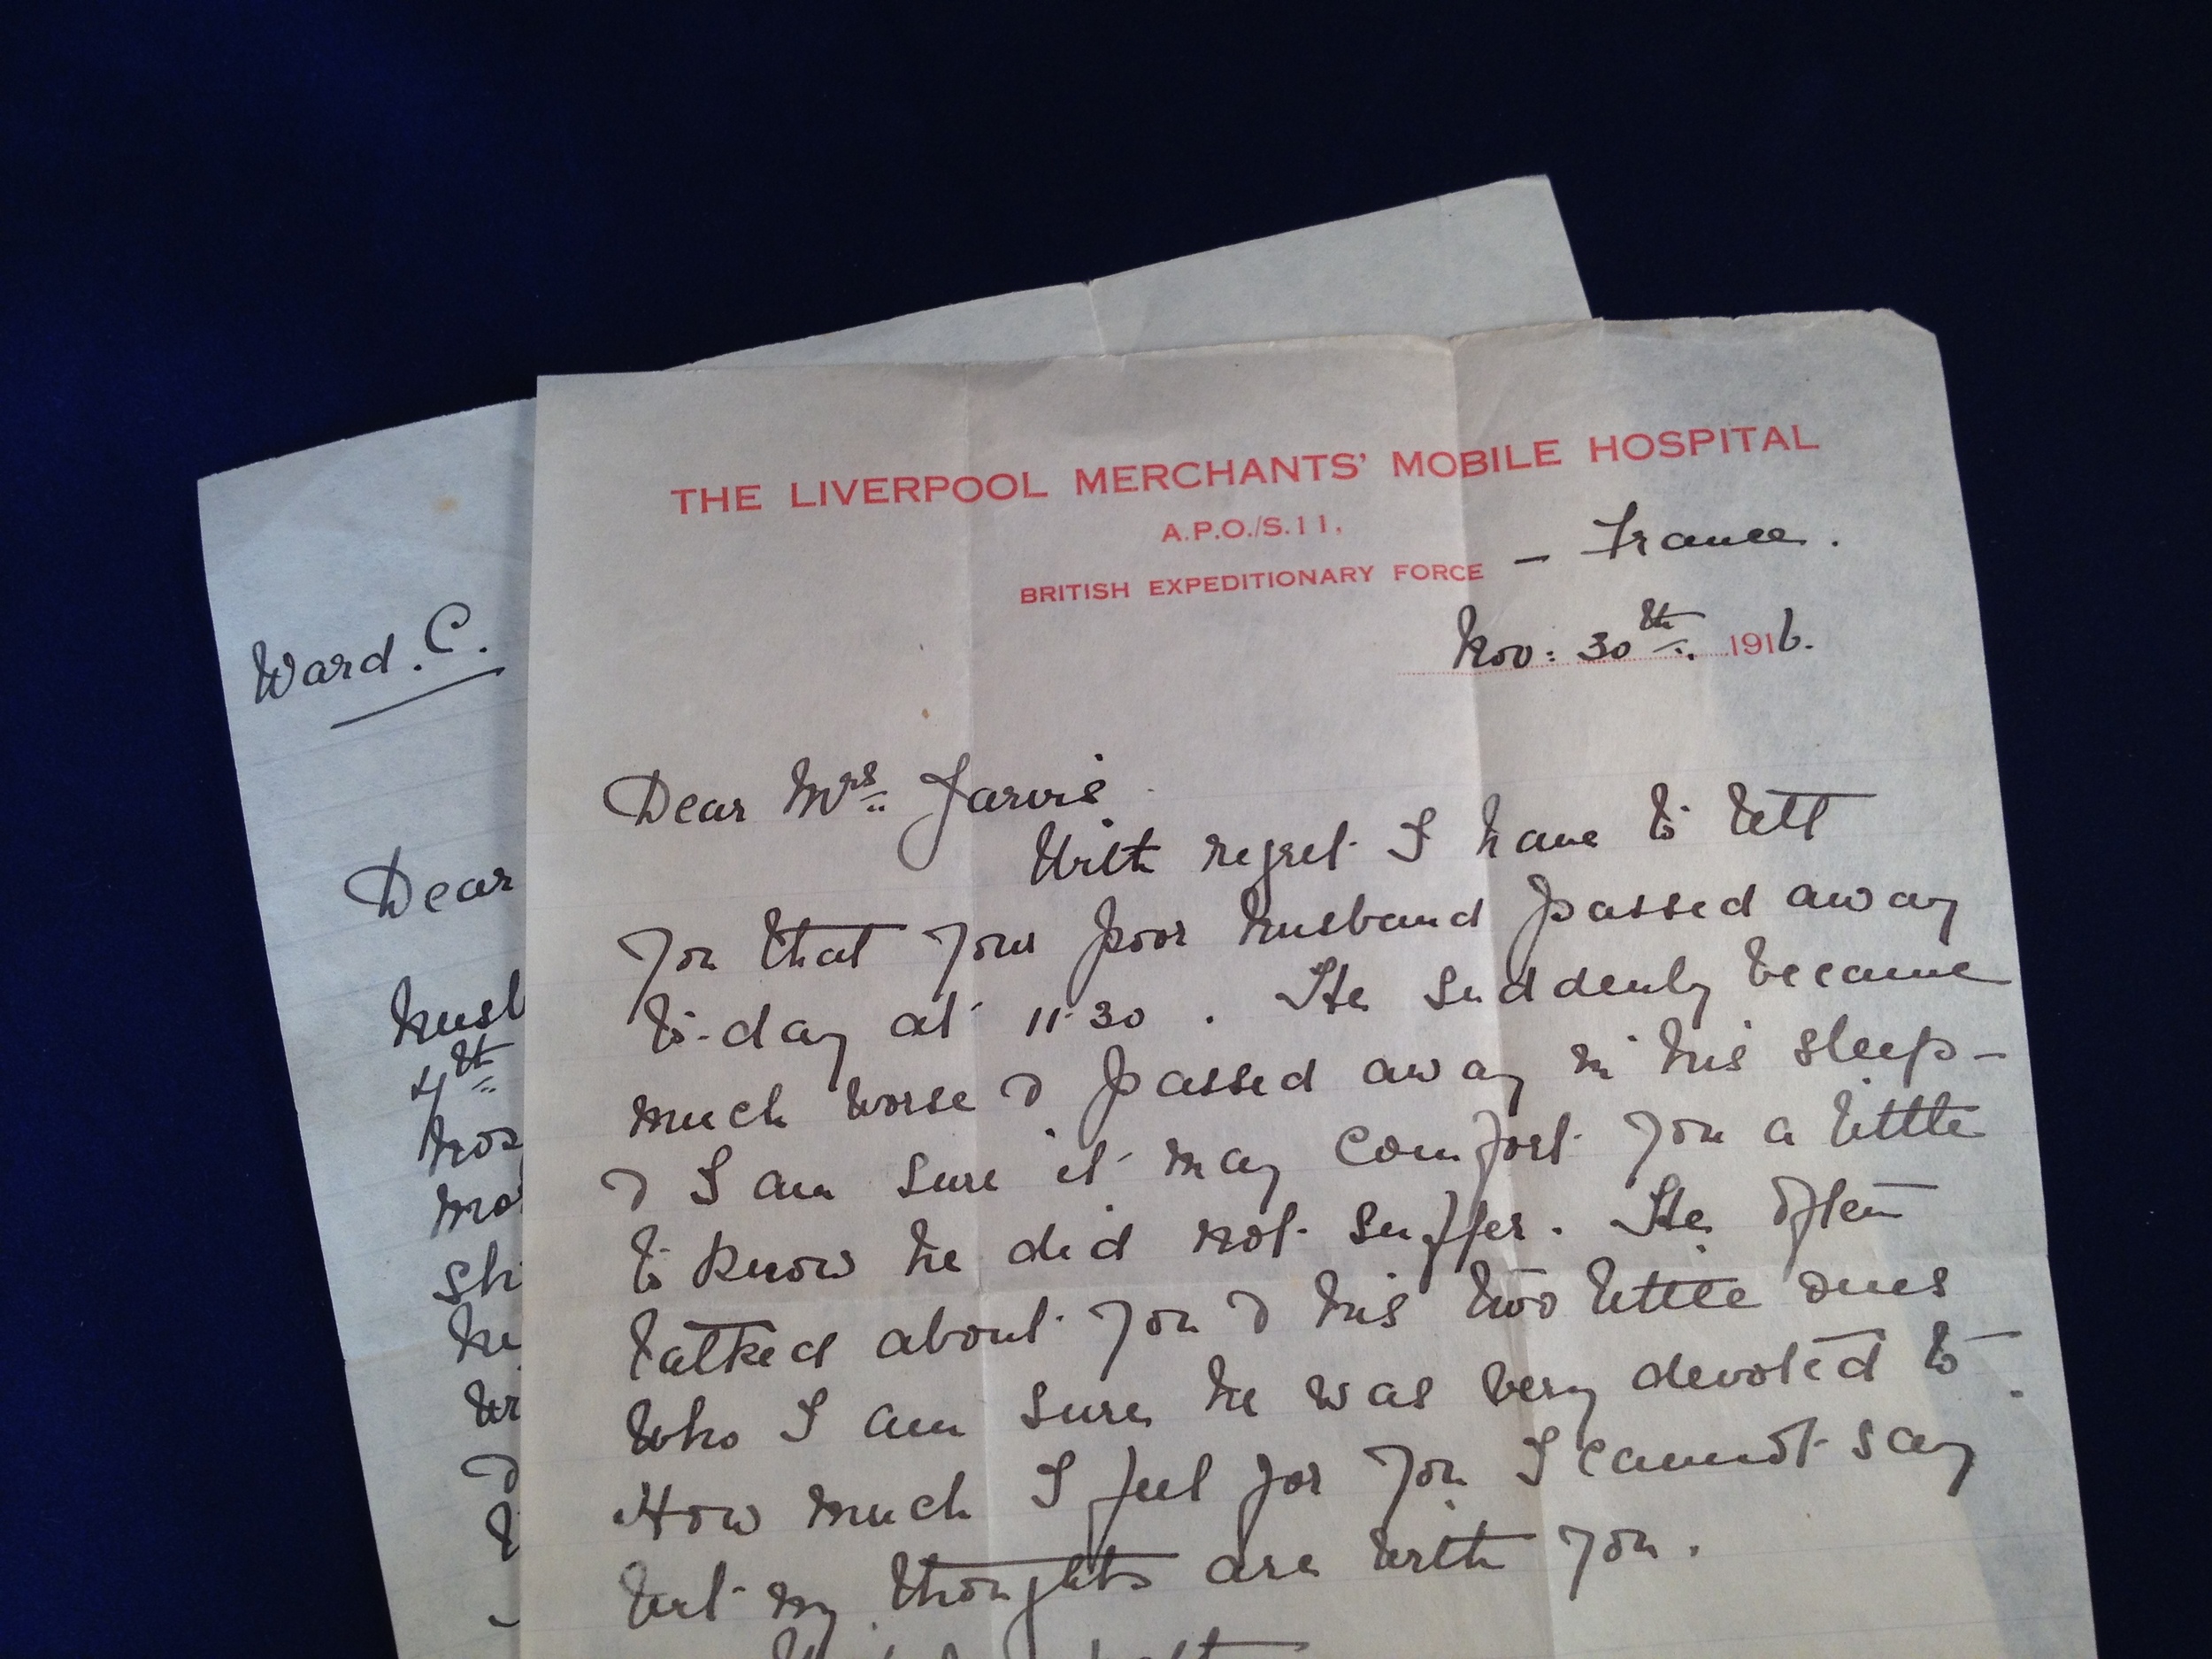 THE LIVERPOOL MERCHANTS' MOBILE HOSPITAL
A.P.O./S.11,
BRITISH EXPEDITIONARY FORCE — France.
Nov: 30th. 1916.
Dear Mrs. Jarvis
With regret I have to tell
you that your poor husband passed away
to-day at 11.30. He suddenly became
much worse & passed away in his sleep —
& I am sure it may comfort you a little
to know he did not suffer. He often
talked about you & his two little ones
who I am sure he was very devoted to.
How much I feel for you I cannot say
but my thoughts are with you.
Ward. C.
Dear
4th